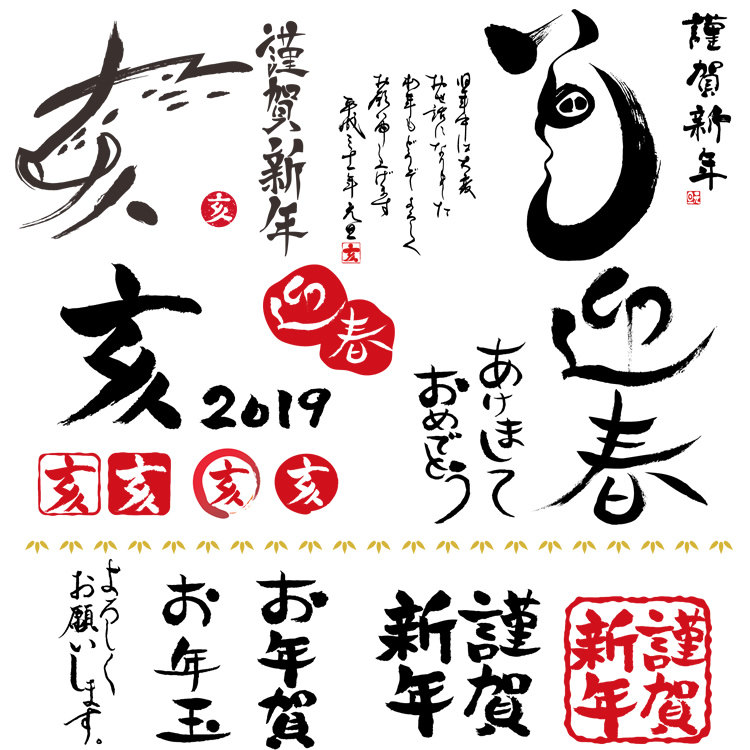 亥
亥
謹賀新年
旧年中は大変
お世話になりました
本年もどうぞよろしく
お願い申し上げます
平成三十一年 元旦
亥
謹賀新年
亥
2019
迎春
あけまして
おめでとう
迎春
亥
亥
亥
亥
よろしく
お願いします。
お年玉
お年賀
謹賀
新年
謹賀
新年